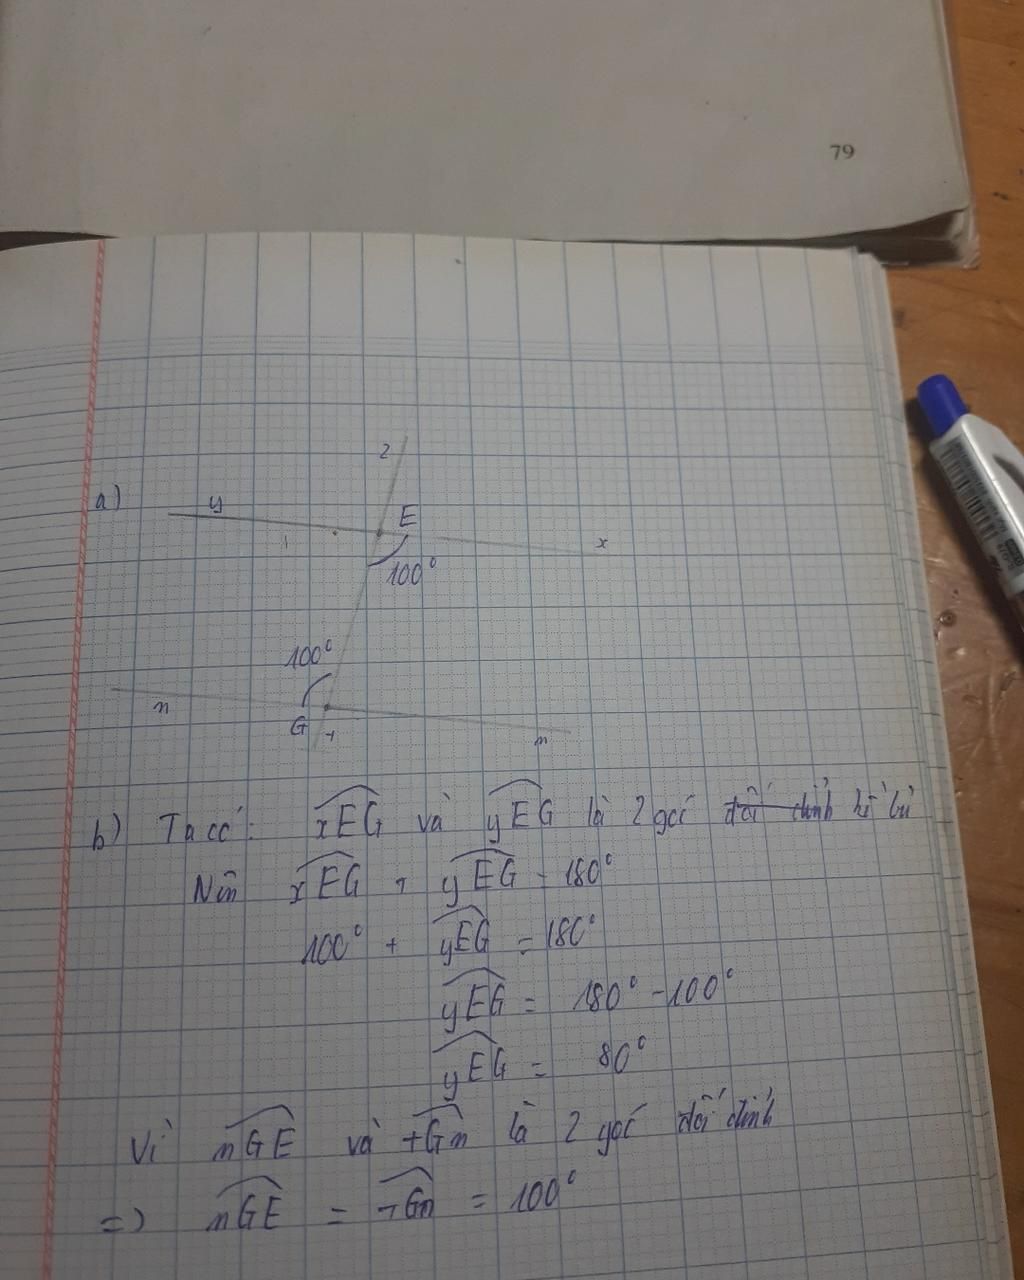 79
2
a) y E x
100°
100°
n
G t m
b) Ta có: xEG và yEG là 2 góc đối đỉnh kề bù
Nên xEG + yEG = 180°
100° + yEG = 180°
yEG = 180° - 100°
yEG = 80°
Vì nGE và tGm là 2 góc đối đỉnh
=> nGE = tGm = 100°